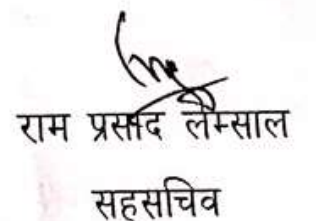 राम प्रसाद लम्साल
सहसचिव